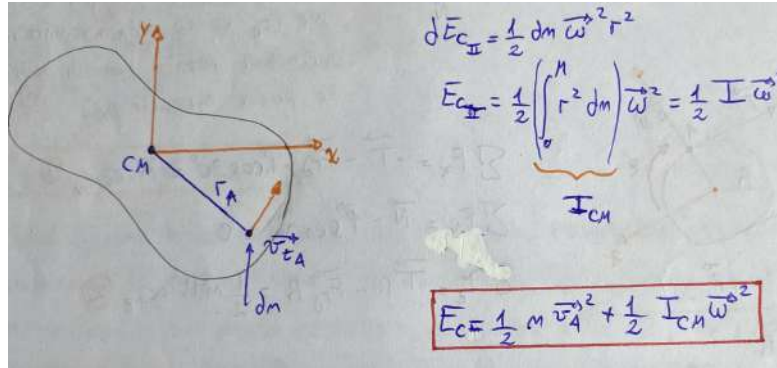 y
x
CM
r_A
\vec{v_{tA}}
dm
dE_{C_{II}} = \frac{1}{2} dm \vec{ω}^2 r^2
E_{C_{II}} = \frac{1}{2} \left( \int_0^M r^2 dm \right) \vec{ω}^2 = \frac{1}{2} I \vec{ω}
I_{CM}
E_C = \frac{1}{2} m \vec{v_A}^2 + \frac{1}{2} I_{CM} \vec{ω}^2